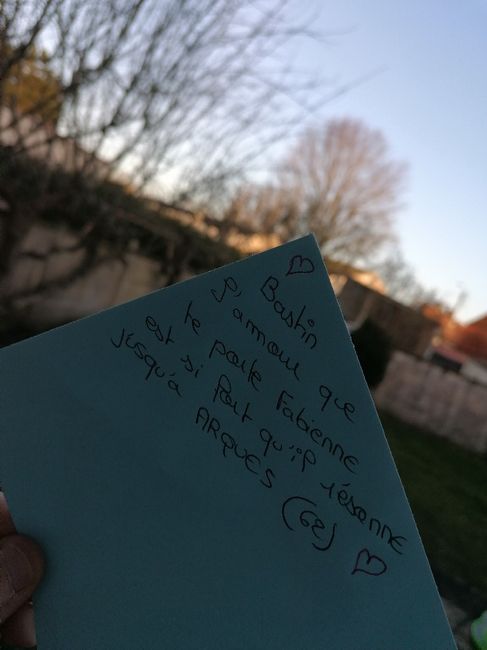 ♡ Bastin
L'amour que
te porte Fabienne
est si fort qu'il résonne
jusqu'à ARQUES (62) ♡